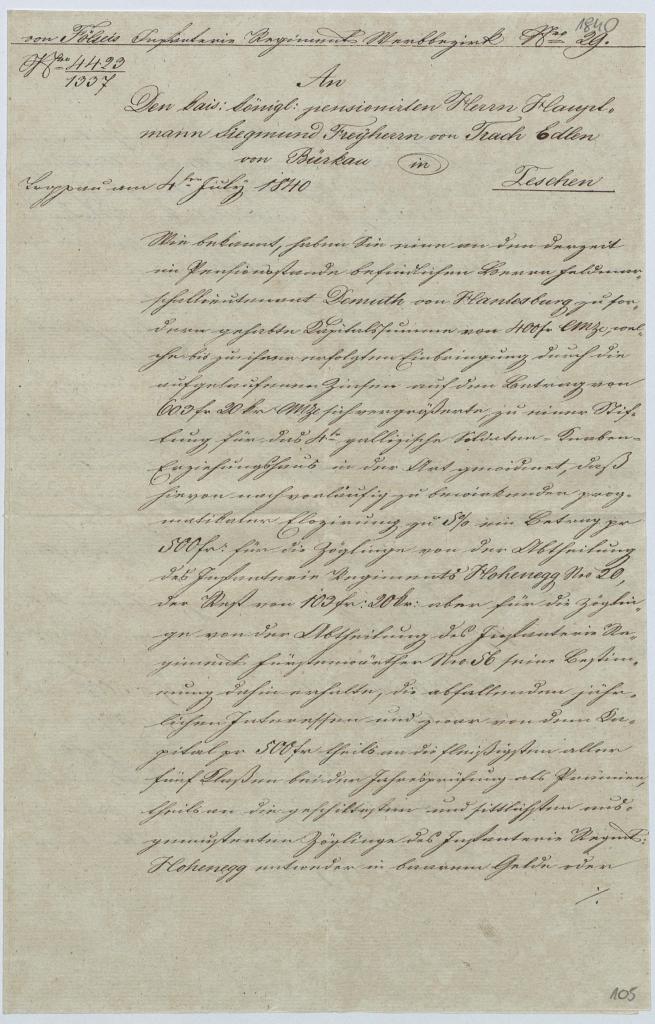 1840
von Fölseis Infanterie Regiments Werbbezirk Nro 29.
Nro 4423
1337
An
Den kais: königl: pensionirten Herrn Haupt-
mann Siegmund Freyherrn von Trach Edlen
von Bürkau in
Troppau am 4ten July 1840 Teschen
Wie bekannt, haben Sie eine an den derzeit
im Pensionsstande befindlichen Herrn Feldmar-
schallieutenant Demuth von Hantesburg zu for-
dern gehabte Kapitalssumme von 400 fr CMze, wel-
che bis zu ihrer erfolgten Einbringung durch die
aufgelaufenen Zinsen auf den Betrag von
603 fr 20 kr CMze sich vergrößerte zu einer Stif-
tung für das 4te gallizische Soldaten-Knaben-
Erziehungshaus in der Art gewidmet, daß
hievon nach vorläufig zu bewirkender prag-
matikaler Elozirung zu 5% ein Betrag pr
500 fr: für die Zöglinge von der Abtheilung
des Infanterie Regiments Hohenegg Nro 20,
der Rest von 103 fr: 20 kr: aber für die Zöglin-
ge von der Abtheilung des Infanterie Re-
giments Fürstenwärther Nro 56 seine Bestim-
mung dahin erhalte, die abfallenden jähr-
lichen Interessen und zwar von dem Ka-
pital pr 500 fr theils an die fleißigsten aller
fünf Klaßen bei der Jahresprüfung als Prämien,
theils an die geschiktesten und sittlichsten aus-
gemusterten Zöglinge des Infanterie Regmts:
Hohenegg entweder in baarem Gelde oder
./.
105